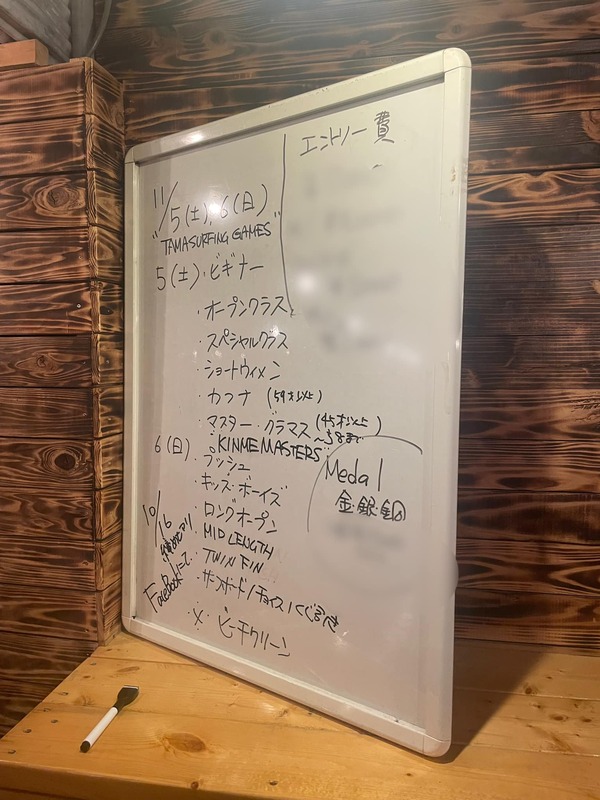 エントリー費
11/5(土), 6(日)
"TAMASURFING GAMES"
5(土)・ビギナー
・オープンクラス
・スペシャルクラス
・ショートウィメン
・カフナ (59才以上)
・マスター・グラマス (45才以上)
〜58まで
・KINMEMASTERS
6(日)・プッシュ
・キッズ・ボーイズ
・ロングオープン
・MID LENGTH
・TWIN FIN
10/16
FaceBookにて
※ ビーチクリーン
Medal
金・銀・銅